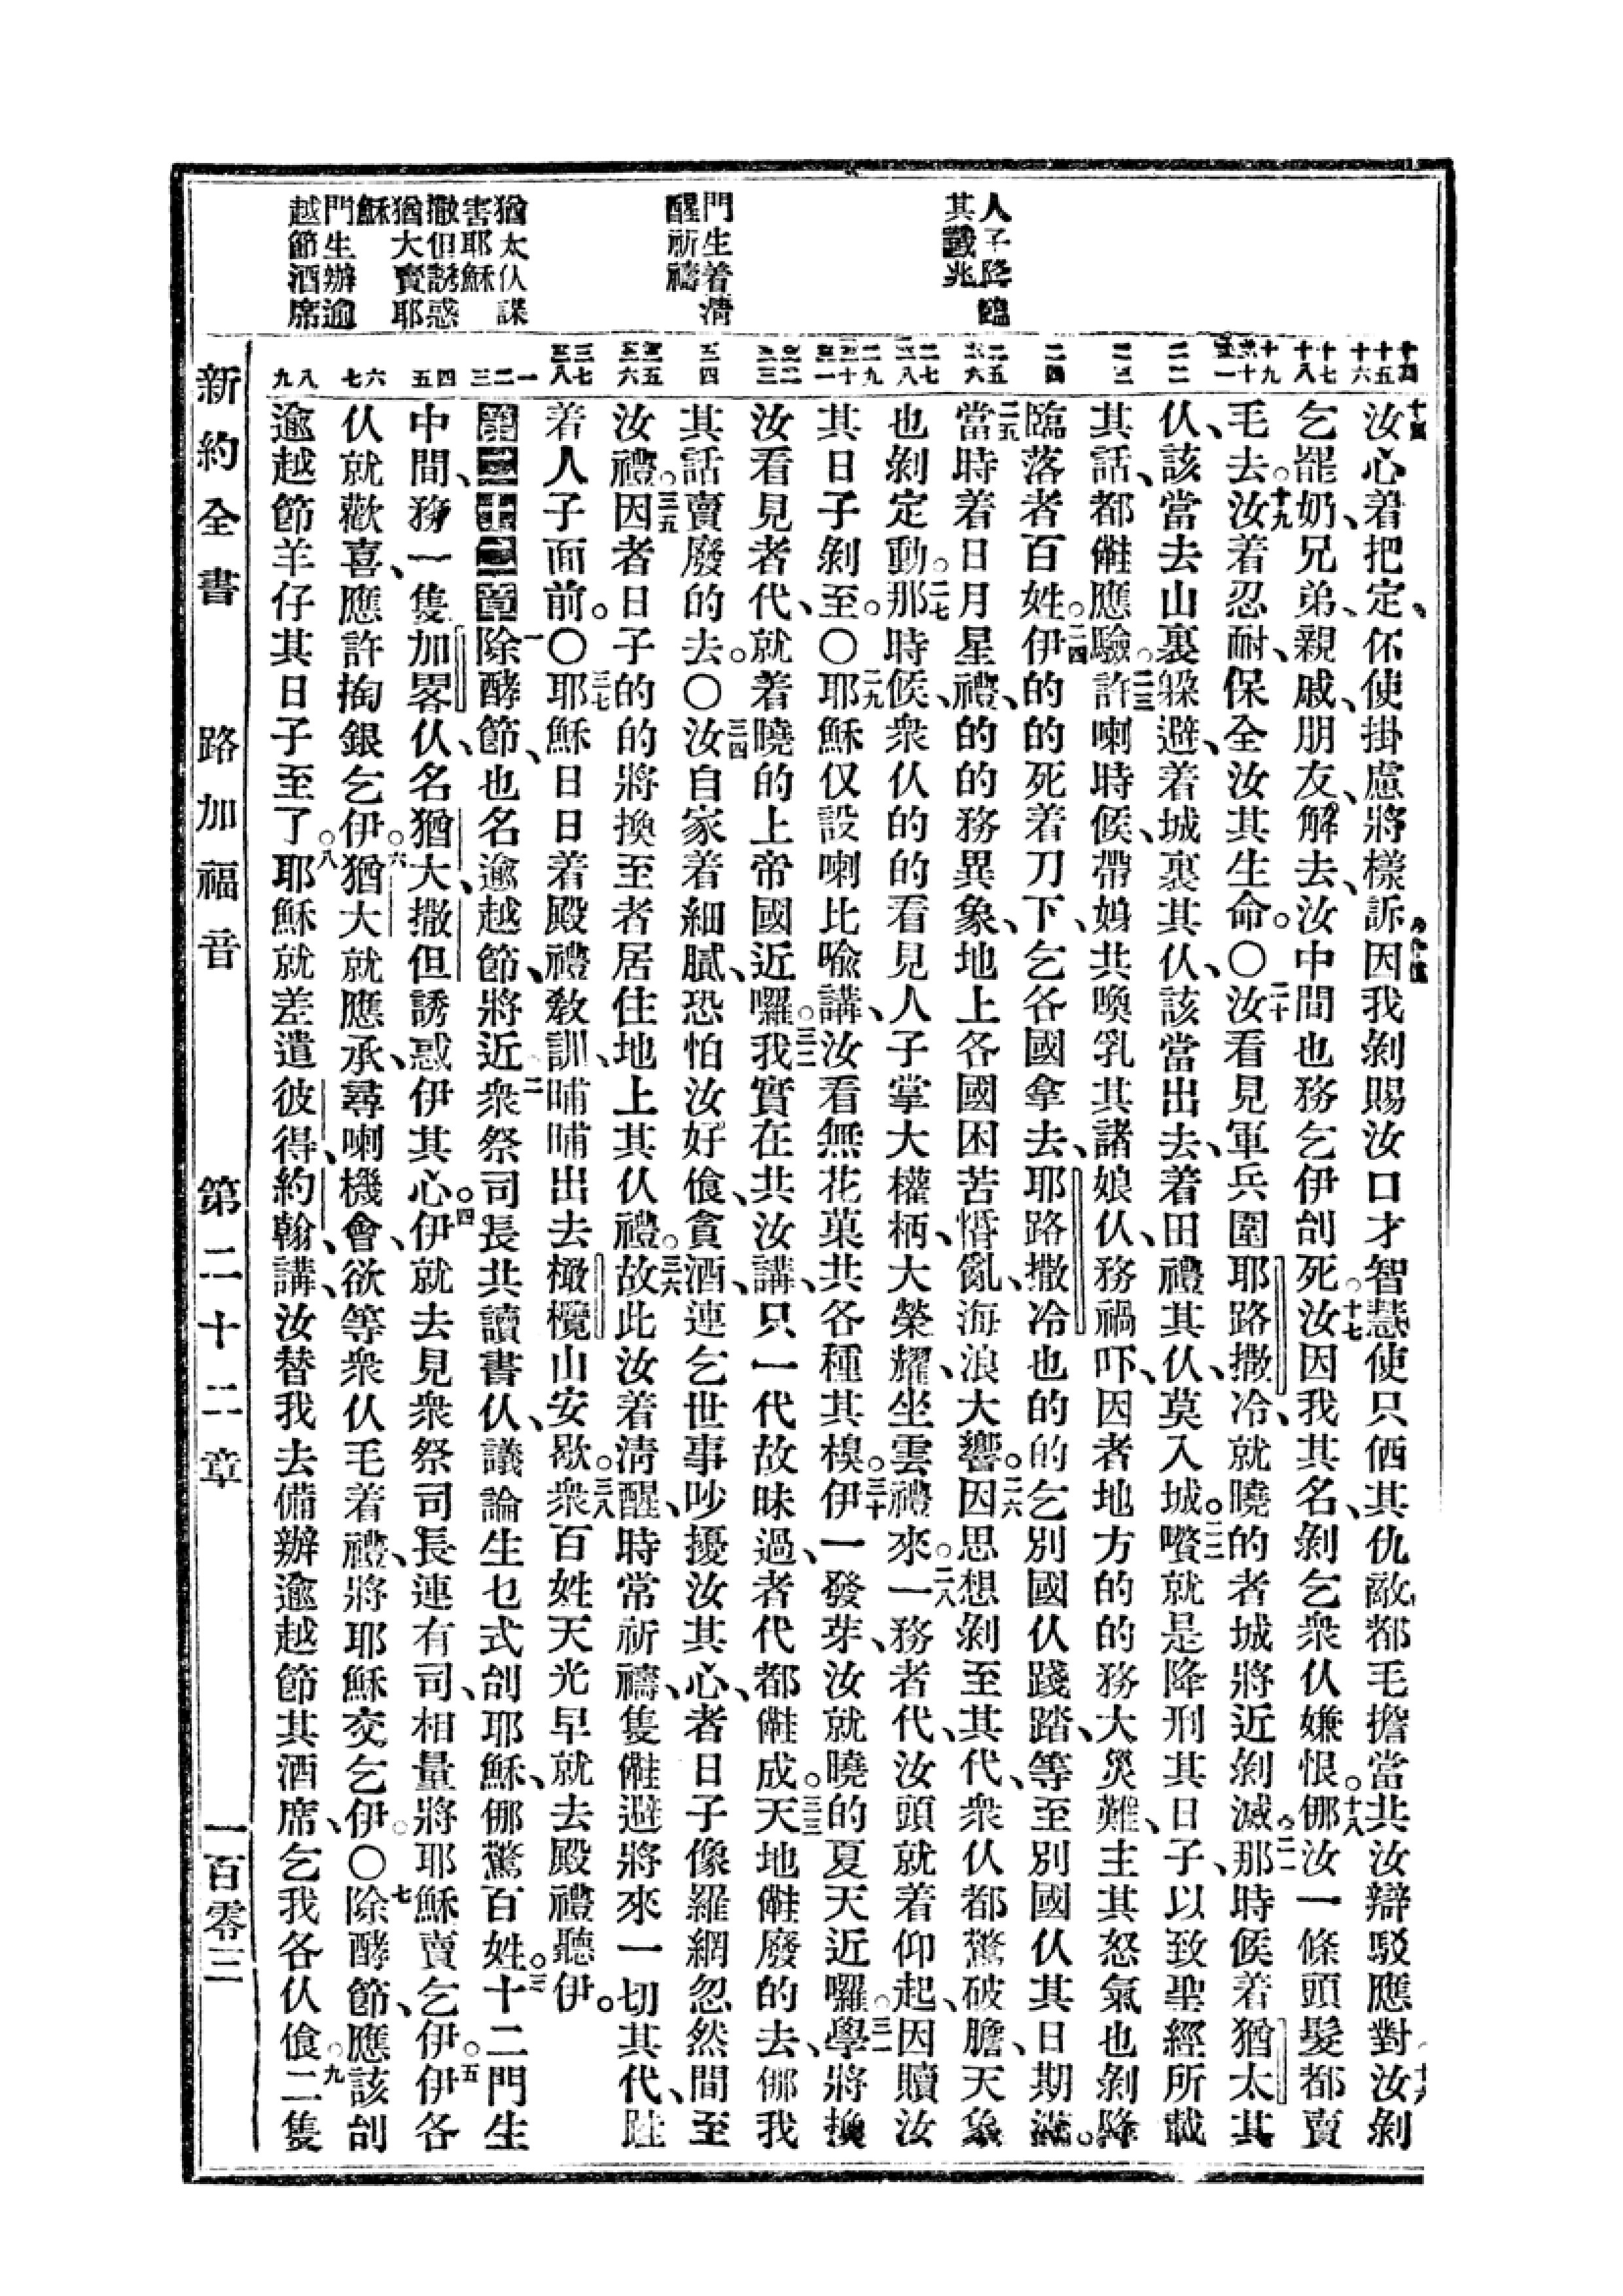 人子降臨
其戴兆
門生着淸
醒祈禱
猶太仈謀
害耶穌
撒但誘惑
猶大賣耶
穌
門生辦逾
越節酒席
汝心着把定、伓使掛慮將樣訴因我剝賜汝口才智慧使只倄其仇敵都毛擔當共汝辯駁應對汝剝
乞罷奶兄弟、親戚、朋友、解去、汝中間也務乞伊刣死。十七汝因我其名、剝乞衆仈嫌恨。十八㑚汝一條頭髮都賣
毛去。十九汝着忍耐、保全汝其生命。〇二十汝看見軍兵圍耶路撒冷、就曉的者城將近剝滅。二一那時候着猶太其
仈、該當去山裏躲避、着城裏其仈、該當出去、着田禮其仈、莫入城。二二嚽就是降刑其日子、以致聖經所載
其話、都㒕應驗。二三許喇時候、帶娠共喚乳其諸娘仈、務禍吓、因者地方的的務大災難、主其怒氣也剝降
臨落者百姓。二四伊的的死着刀下、乞各國拿去、耶路撒冷也的的乞別國仈踐踏、等至別國仈其日期滿。
二五當時着日月星禮、的的務異象、地上各國困苦惛亂、海浪大響。二六因思想剝至其代、衆仈都驚破膽、天象
也剝定動。二七那時候、衆仈的的看見人子掌大權柄、大榮耀、坐雲禮來。二八一務者代、汝頭就着仰起、因贖汝
其日子剝至。〇二九耶穌仅設喇比喩講、汝看無花菓共各種其椇。三十伊一發芽、汝就曉的夏天近囉。三一學將換
汝看見者代、就着曉的上帝國近囉。三二我實在共汝講、只一代故昧過、者代都㒕成。三三天地㒕廢的去、㑚我
其話賣廢的去。〇三四汝自家着細膩、恐怕汝好飡、貪酒、連乞世事吵擾汝其心、者日子像羅網忽然間至
汝禮。三五因者日子的的將換至者居住地上其仈禮。三六故此汝着淸醒、時常祈禱、隻㒕避將來一切其代、跬
着人子面前。〇三七耶穌日日着殿禮教訓、晡晡出去橄欖山安歇。三八衆百姓天光早就去殿禮聽伊。
第二十二章一除酵節、也名逾越節、將近。二衆祭司長共讀書仈、議論生乜式刣耶穌、㑚驚百姓。三十二門生
中間、務一隻加畧仈、名猶大、撒但誘惑伊其心。四伊就去見衆祭司長連有司、相量將耶穌賣乞伊。五伊各
仈就歡喜、應許掏銀乞伊。六猶大就應承、尋喇機會、欲等衆仈毛着禮、將耶穌交乞伊。〇七除酵節、應該刣
逾越節羊仔其日子至了。八耶穌就差遣彼得、約翰、講、汝替我去備辦逾越節其酒席、乞我各仈飡。九二隻
新約全書 路加福音 第二十二章 一百零三